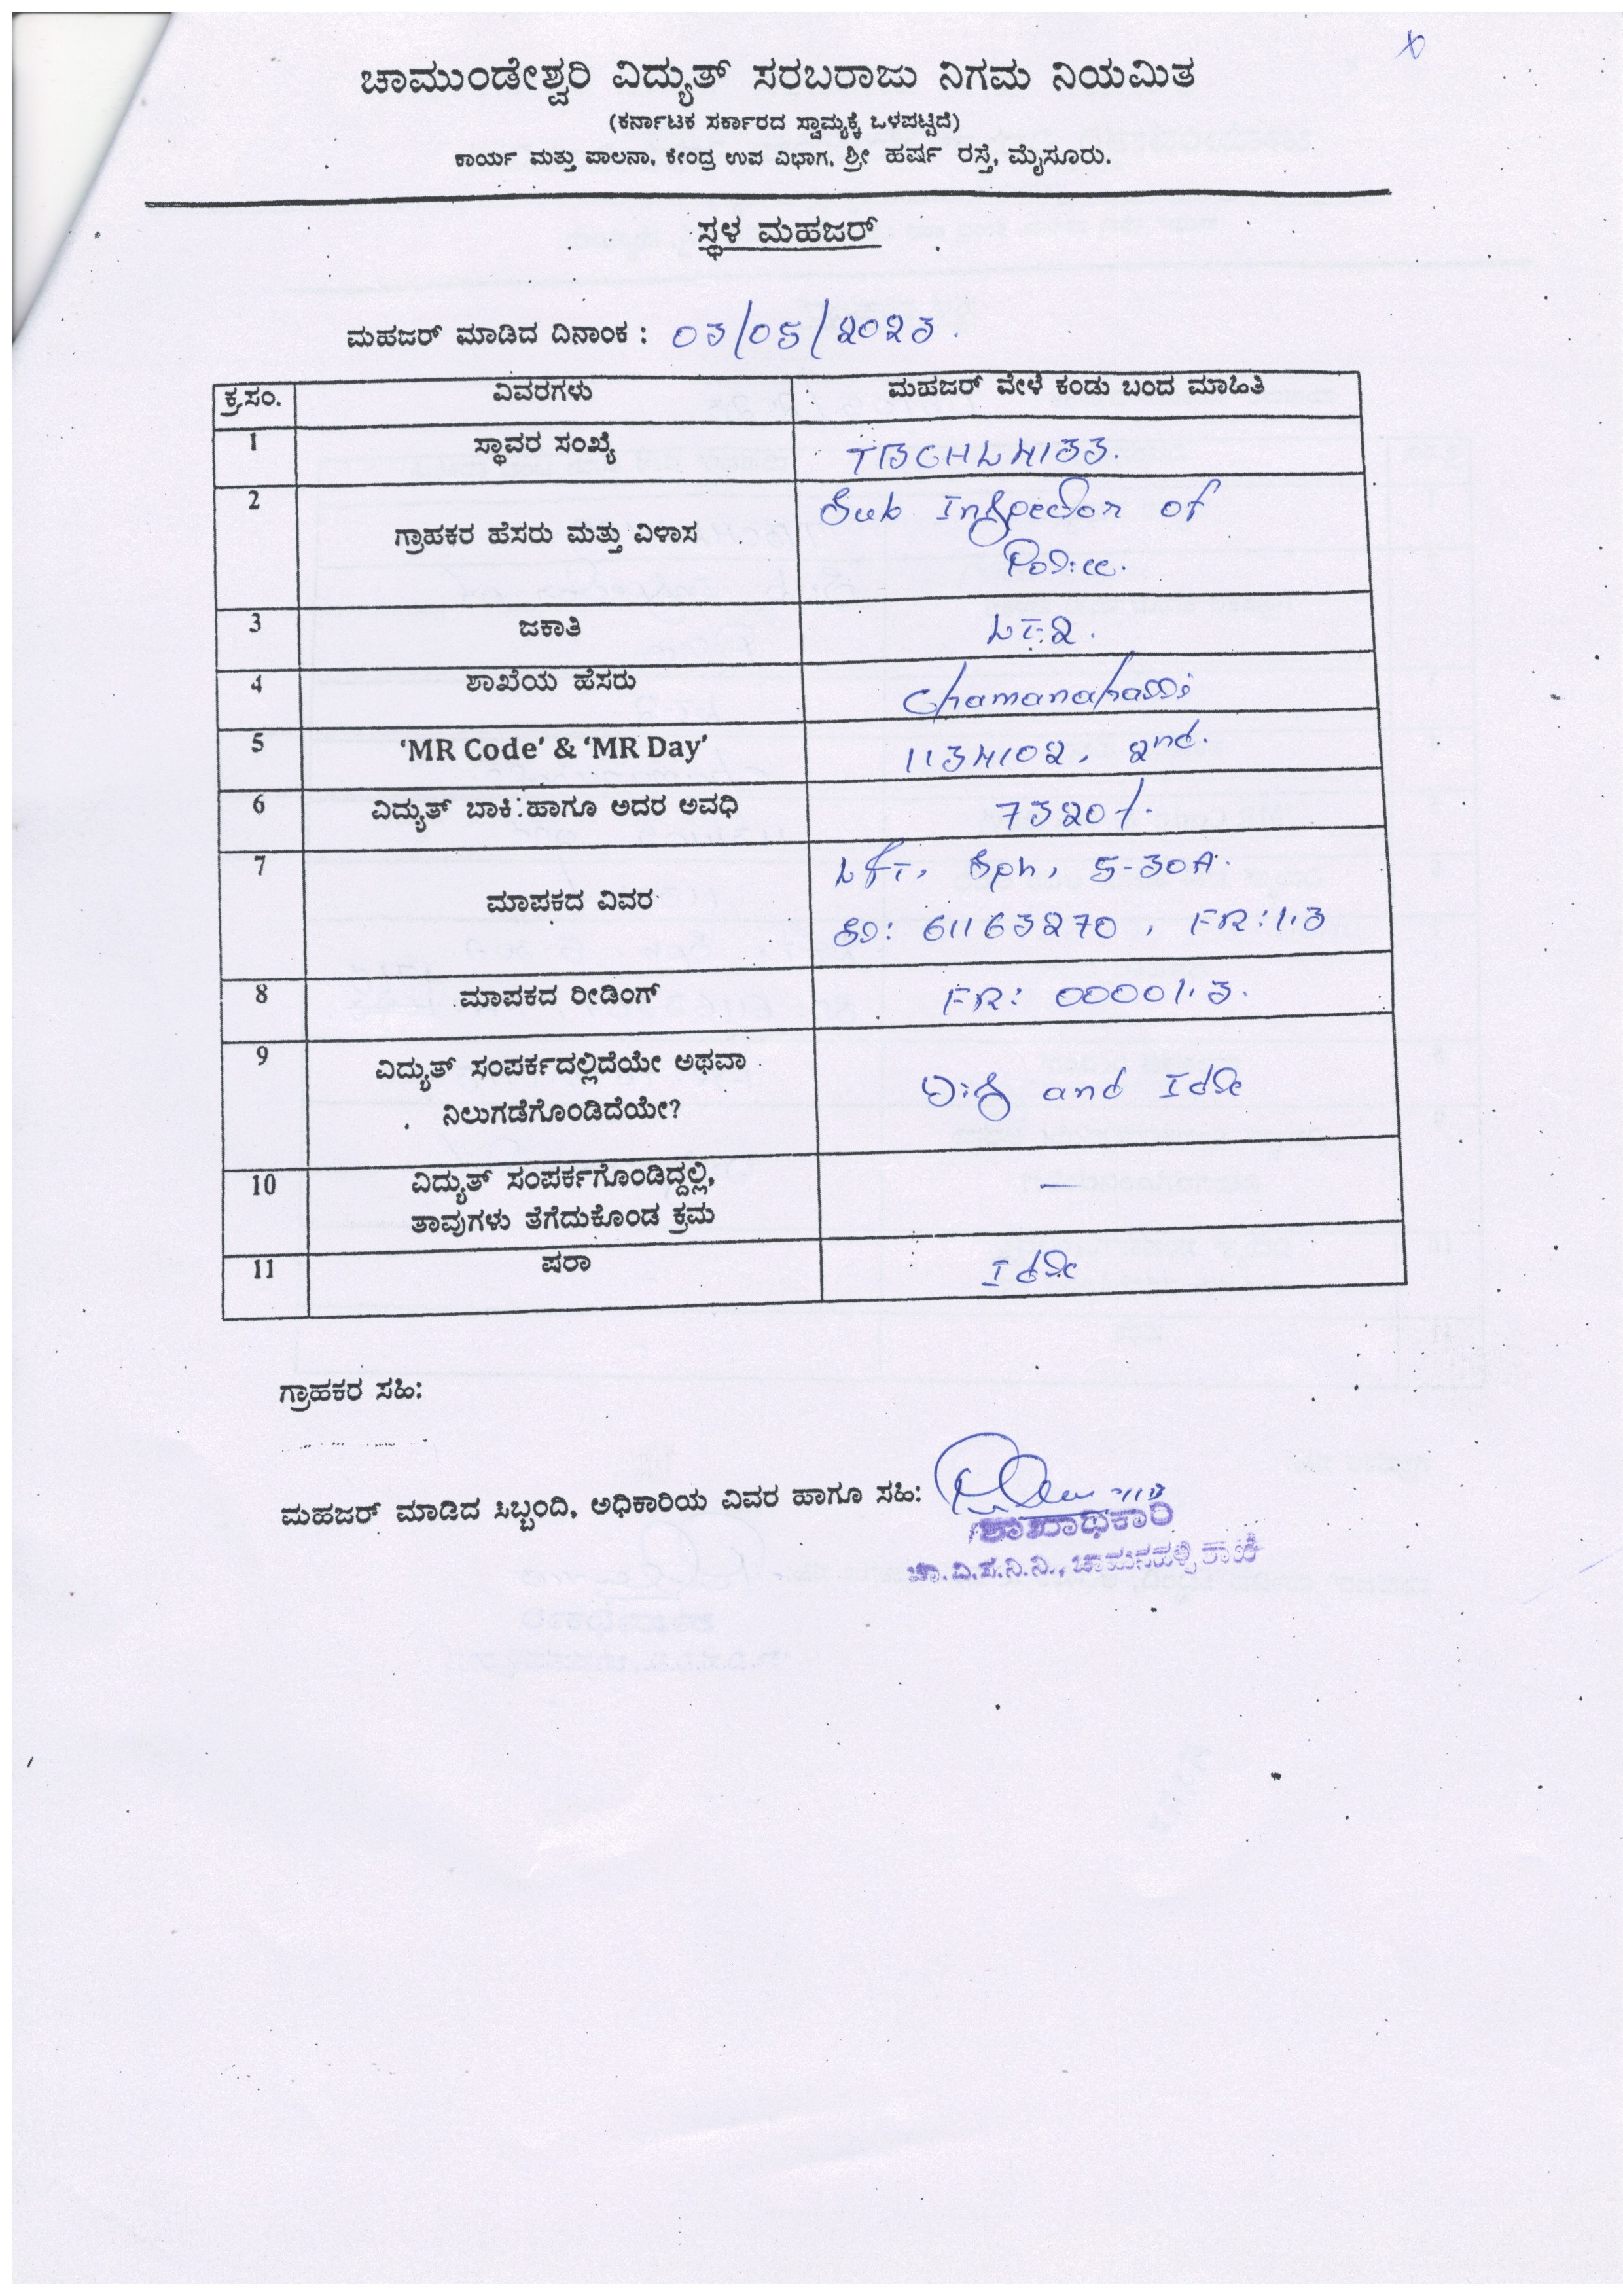 ಚಾಮುಂಡೇಶ್ವರಿ ವಿದ್ಯುತ್ ಸರಬರಾಜು ನಿಗಮ ನಿಯಮಿತ
(ಕರ್ನಾಟಕ ಸರ್ಕಾರದ ಸ್ವಾಮ್ಯಕ್ಕೆ ಒಳಪಟ್ಟಿದೆ)
ಕಾರ್ಯ ಮತ್ತು ಪಾಲನಾ, ಕೇಂದ್ರ ಉಪ ವಿಭಾಗ, ಶ್ರೀ ಹರ್ಷ ರಸ್ತೆ, ಮೈಸೂರು.
ಸ್ಥಳ ಮಹಜರ್
ಮಹಜರ್ ಮಾಡಿದ ದಿನಾಂಕ : 03/05/2023.
ಕ್ರ.ಸಂ. ವಿವರಗಳು ಮಹಜರ್ ವೇಳೆ ಕಂಡು ಬಂದ ಮಾಹಿತಿ
1 ಸ್ಥಾವರ ಸಂಖ್ಯೆ TBCHL4133.
2 ಗ್ರಾಹಕರ ಹೆಸರು ಮತ್ತು ವಿಳಾಸ Sub Inspector of
Police.
3 ಜಕಾತಿ LT-2.
4 ಶಾಖೆಯ ಹೆಸರು Chamanahalli
5 'MR Code' & 'MR Day' 1134102, 2nd.
6 ವಿದ್ಯುತ್ ಬಾಕಿ ಹಾಗೂ ಅದರ ಅವಧಿ 7320/-
7 ಮಾಪಕದ ವಿವರ 5-30A.
61163270, FR:1.3
8 ಮಾಪಕದ ರೀಡಿಂಗ್ FR: 00001.3.
9 ವಿದ್ಯುತ್ ಸಂಪರ್ಕದಲ್ಲಿದೆಯೇ ಅಥವಾ
ನಿಲುಗಡೆಗೊಂಡಿದೆಯೇ? Dis and Idle
10 ವಿದ್ಯುತ್ ಸಂಪರ್ಕಗೊಂಡಿದ್ದಲ್ಲಿ,
ತಾವುಗಳು ತೆಗೆದುಕೊಂಡ ಕ್ರಮ —
11 ಷರಾ Idle
ಗ್ರಾಹಕರ ಸಹಿ:
ಮಹಜರ್ ಮಾಡಿದ ಸಿಬ್ಬಂದಿ, ಅಧಿಕಾರಿಯ ವಿವರ ಹಾಗೂ ಸಹಿ:
ಶಾಖಾಧಿಕಾರಿ
ಚಾ.ವಿ.ಸ.ನಿ.ನಿ., ಚಾಮನಹಳ್ಳಿ ಶಾಖೆ